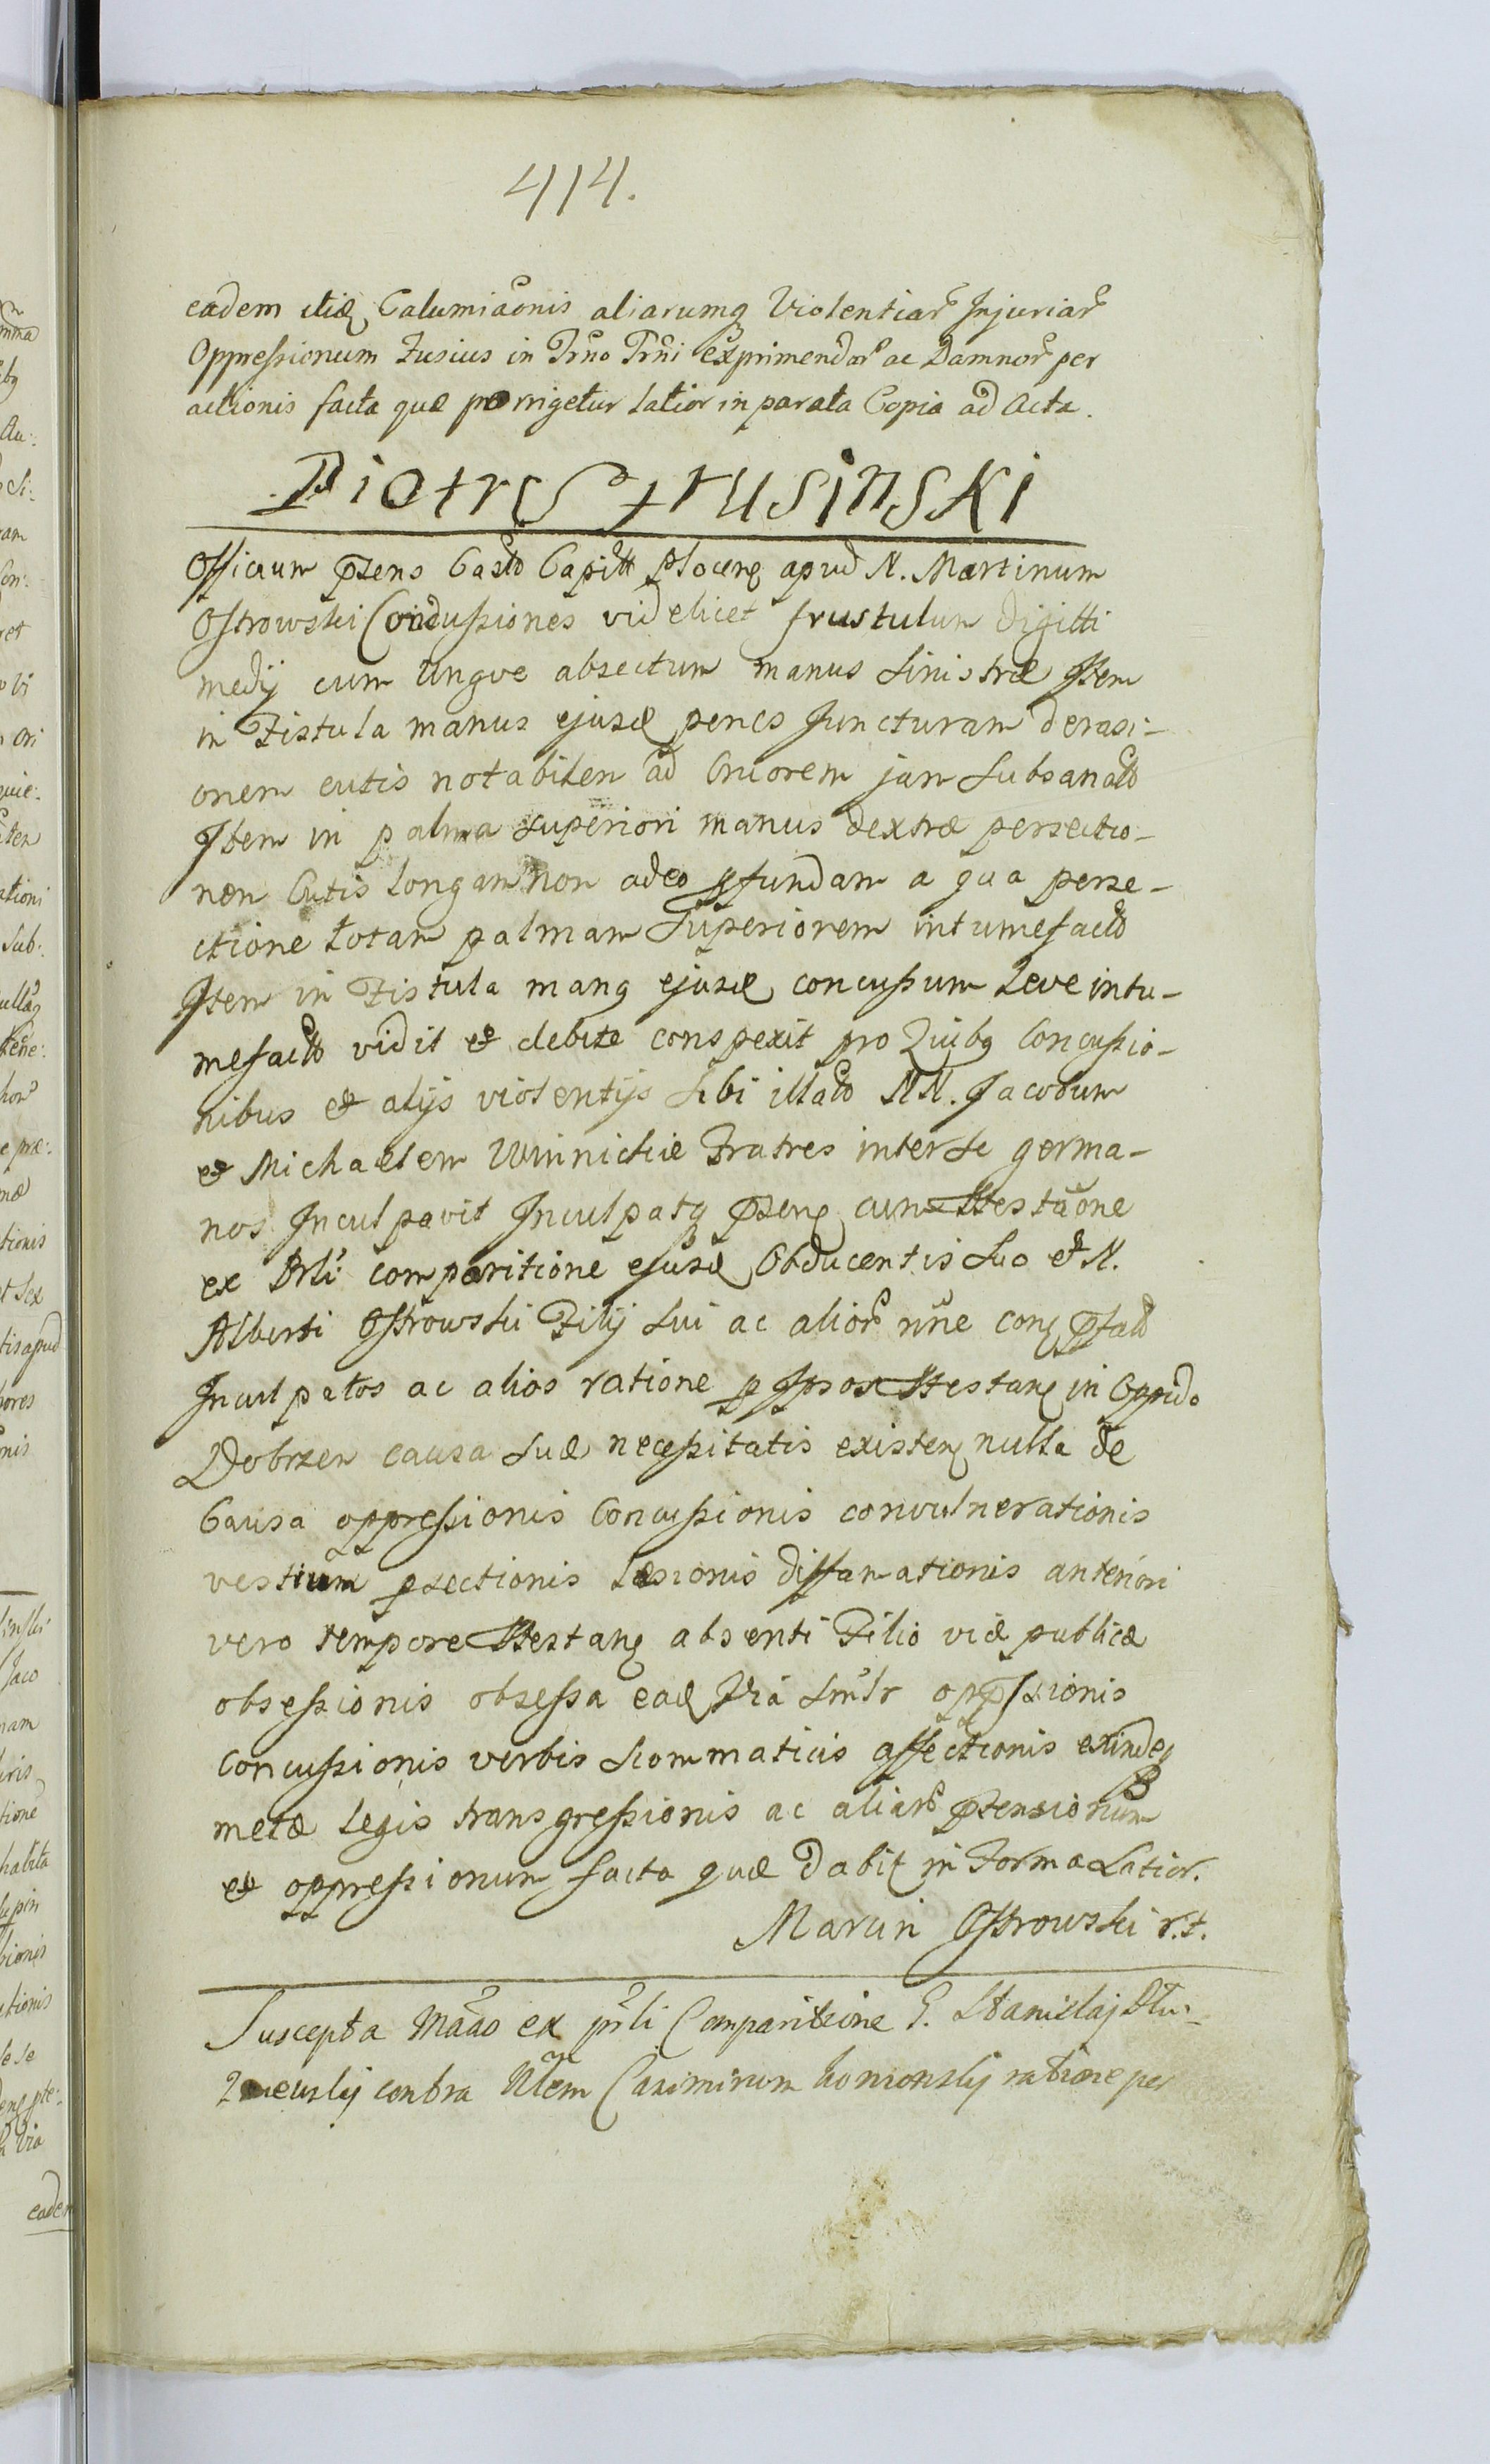 414.
eadem itiq Calumiãonis aliarumq Violentiar Injuriar
Oppressionum Fusius in Trno Trni exprimendar ac Damnor per
actionis facta quæ porrigetur latior in parata Copia ad Acta.
Piotr Strusinski
Officium pzens Castr Capitt Plocenς apud N. Martinum
Ostrowski Concussiones videlicet frustulum Digitti
medij cum Ungve absectum manus Sinistræ Item
in Fistula manus ejusd penes Juncturam derasi-
onem cutis notabilem ad Cruorem jam Subsanatt
Item in palma superiori manus dextræ persectio-
nem Cutis longam non adeo pfundam a qua perse-
ctione totam palmam Superiorem intumefactt
Item in Fistula manq ejusd concussum Leve intu-
mefactt vidit et debite conspexit pro Quibq Concussio-
nibus et alijs violentijs Sibi illatt NN. Jacobum
et Michaelem Winnickie Fratres inter Se germa-
nos Inculpavit Inculpatq pzenς cum Attestãone
ex Prli comparitione ejusd Obducentis Suo et N.
Alberti Ostrowski Filij Sui ac alior nne conς pfatt
Inculpatos ac alios ratione p Ipsos Attestanς in Oppido
Dobrzen causa Suæ necessitatis existenς nulla de
Causa oppressionis Concussionis convulnerationis
vestium psectionis Læsionis diffamationis anteriori
vero tempore Attestanς absenti Filio viæ publicæ
obsessionis obsessa ead Via Smlr oppssionis
Concussionis verbis Scommaticis affectionis exindeq
metæ Legis transgressionis ac aliar ptensionum
et oppressionum facta quæ Dabit in Forma Latior.
Marcin Ostrowski r.t.
Suscepta Mãao ex prli Comparitione G. Stanislaj Dlu-
contra Nlem Casimirum ratione per